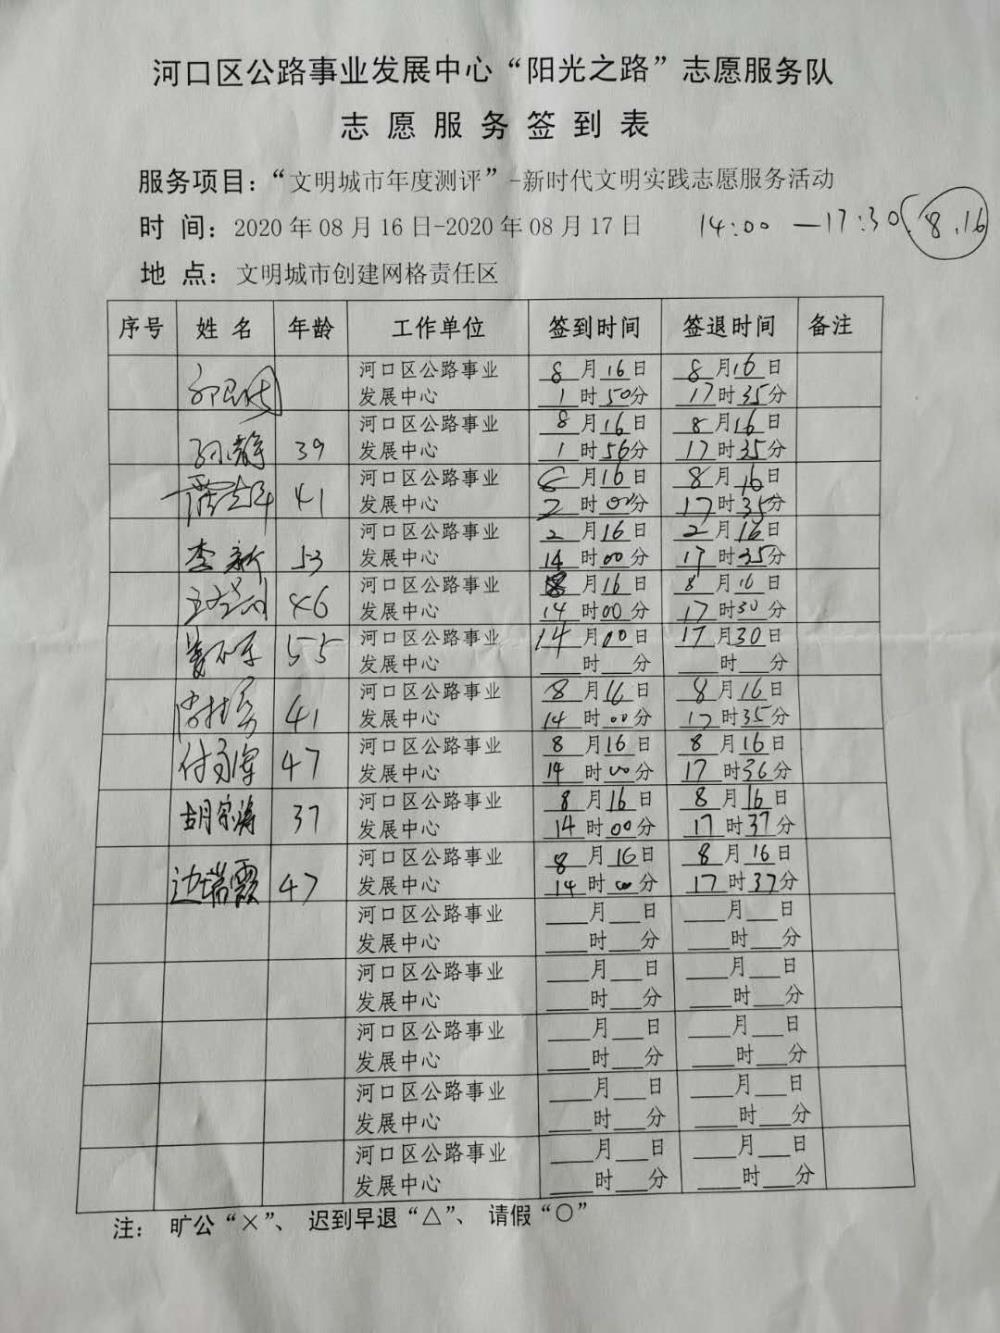 河口区公路事业发展中心“阳光之路”志愿服务队
志愿服务签到表
服务项目：“文明城市年度测评”-新时代文明实践志愿服务活动
时 间：2020年08月16日-2020年08月17日 14:00—17:30(8.16
地 点：文明城市创建网格责任区
序号 姓名 年龄 工作单位 签到时间 签退时间 备注
河口区公路事业 8月16日 8月16日
发展中心 1时50分 17时35分
河口区公路事业 8月16日 8月16日
孙静 39 发展中心 1时56分 17时35分
河口区公路事业 月16日 8月16日
41 发展中心 2时00分 17时35分
河口区公路事业 2月16日 2月16日
李新 53 发展中心 14时00分 17时35分
河口区公路事业 8月16日 8月16日
46 发展中心 14时00分 17时30分
河口区公路事业 14月00日 17月30日
55 发展中心 时 分 时 分
河口区公路事业 8月16日 8月16日
41 发展中心 14时00分 17时35分
河口区公路事业 8月16日 8月16日
47 发展中心 14时00分 17时36分
河口区公路事业 8月16日 8月16日
胡宗涛 37 发展中心 14时00分 17时37分
河口区公路事业 8月16日 8月16日
边瑞霞 47 发展中心 14时00分 17时37分
河口区公路事业 月 日 月 日
发展中心 时 分 时 分
河口区公路事业 月 日 月 日
发展中心 时 分 时 分
河口区公路事业 月 日 月 日
发展中心 时 分 时 分
河口区公路事业 月 日 月 日
发展中心 时 分 时 分
河口区公路事业 月 日 月 日
发展中心 时 分 时 分
注： 旷公“×”、 迟到早退“△”、 请假“○”